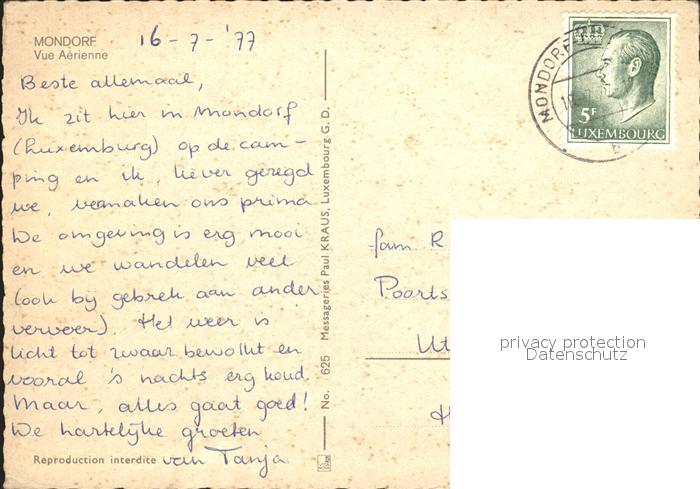 MONDORF
Vue Aérienne
16-7-'77
Beste allemaal,
Ik zit hier in Mondorf
(Luxemburg) op de cam-
ping en ik, liever gezegd
we, vermaken ons prima.
De omgeving is erg mooi
en we wandelen veel
(ook bij gebrek aan ander
vervoer). Het weer is
licht tot zwaar bewolkt en
vooral 's nachts erg koud.
Maar, alles gaat goed!
De hartelijke groeten
van Tanja
Reproduction interdite
No. 625 Messageries Paul KRAUS, Luxembourg G. D.
MONDORF
5F
LUXEMBOURG
fam R
Poorts
Ut
H
privacy protection
Datenschutz